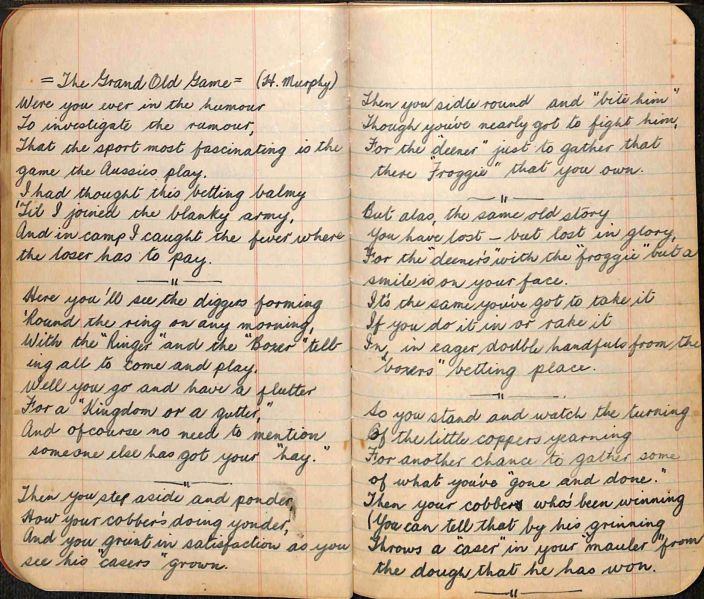 = The Grand Old Game = (H. Murphy)
Were you ever in the humour
To investigate the rumour,
That the sport most fascinating is the
game the Aussies play.
I had thought this betting balmy
'Til I joined the blanky army,
And in camp I caught the fever where
the loser has to pay.
Here you'll see the diggers forming
'Round the ring on any morning,
With the "Ringer" and the "Boxer" tell-
ing all to come and play.
Well you go and have a flutter
For a "Kingdom or a gutter,"
And of course no need to mention
someone else has got your "hay."
Then you step aside and ponder,
How your cobber's doing yonder,
And you grunt in satisfaction as you
see his "casers" grown.
Then you sidle round and "bite him"
Though you've nearly got to fight him,
For the "deener" just to gather that
there "Froggie" that you own.
But alas, the same old story
You have lost – but lost in glory,
For the "deener's" with the "froggie" but a
smile is on your face.
It's the same you've got to take it
If you do it in or rake it
In, in eager, double handfuls from the
"boxers" betting place.
So you stand and watch the turning
Of the little coppers yearning
For another chance to gather some
of what you've "gone and done."
Then your cobber who's been winning
(You can tell that by his grinning
Throws a "caser" in your "mauler" from
the dough that he has won.